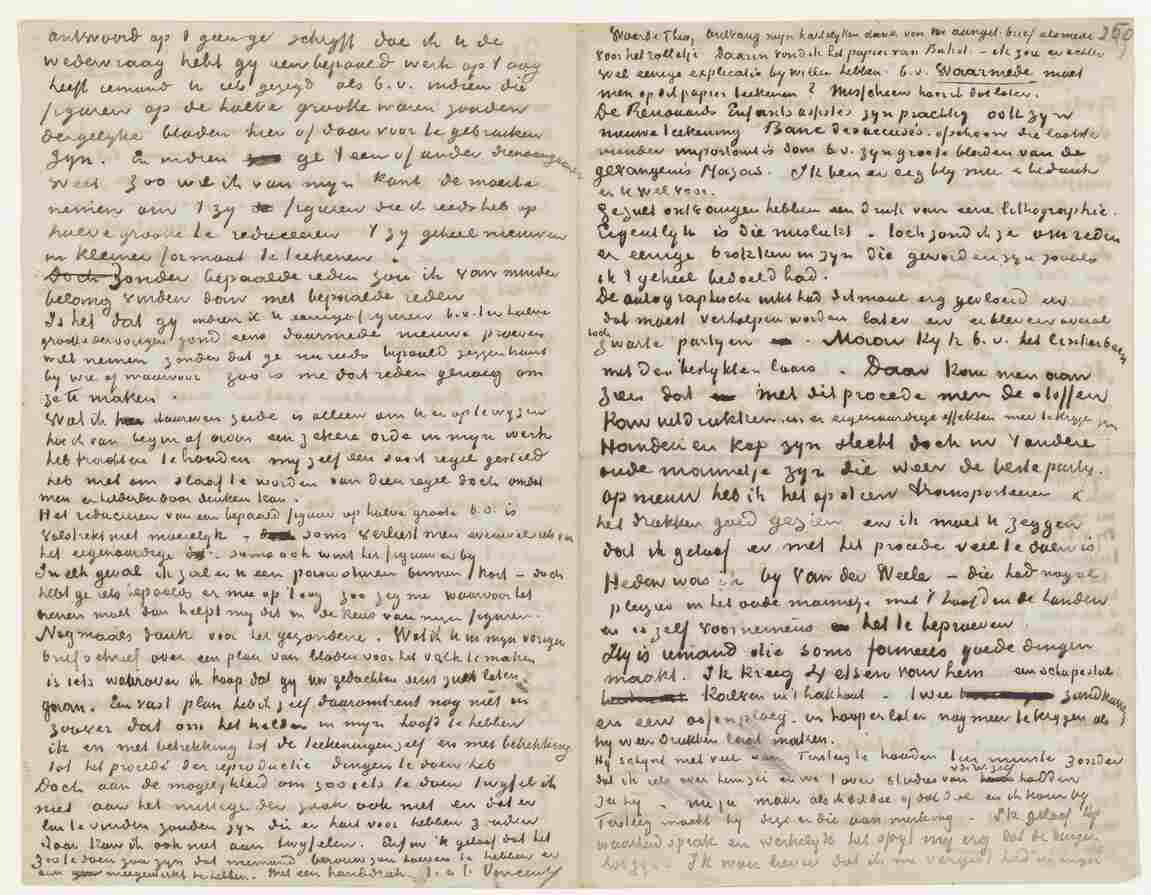 antwoord op 't geen ge schrijft doe ik U de
wedervraag hebt gij een bepaald werk op 't oog
heeft iemand U iets gezegd als b.v. indien die
figuren op de halve grootte waren zouden
dergelijke bladen hier of daar voor te gebruiken
zijn. En indien ge 't een of ander dienaangaande
weet zoo wil ik van mijn kant de moeite
nemen om 't zij figuren die ik reeds heb op
halve grootte te reduceeren 't zij geheel nieuwen
in kleiner formaat te teekenen.
Doch zonder bepaalde reden zou ik van minder
belang vinden dan met bepaalde reden
Is het dat gij indien ik U eenige figuren b.v. ter halve
grootte der vorigen zond eens daarmede nieuwe proeven
wilt nemen zonder dat ge nu reeds bepaald zeggen kunt
bij wie of waarvoor zoo is me dat reden genoeg om
ze te maken.
Wat ik daareven zeide is alleen om U er op te wijzen
hoe ik van begin af aan een zekere orde in mijn werk
heb trachten te houden mij zelf een soort regel gesteld
heb niet om slaaf te worden van dien regel doch omdat
men er helderder door denken kan.
Het reduceren van een bepaald figuur op halve groote b.v. is
volstrekt niet moeielijk – soms verliest men evenwel iets van
het eigenaardige soms ook wint het figuur er bij
In elk geval ik zal er U een paar sturen binnen kort – doch
hebt ge iets bepaalds er mee op 't oog zoo zeg me waarvoor het
dienen moet dan helpt mij dit in de keus van mijn figuren.
Nogmaals dank voor het gezondene. Wat ik U in mijn vorigen
brief schreef over een plan van bladen voor het volk te maken
is iets waarover ik hoop dat gij Uw gedachten eens zult laten
gaan. Een vast plan heb ik zelf daaromtrent nog niet en
zoover dat om het helder in mijn hoofd te hebben
ik én met betrekking tot de teekeningen zelf en met betrekking
tot het procédé der reproductie dingen te doen heb
Doch aan de mogelijkheid om zoo iets te doen twijfel ik
niet aan het nuttige der zaak ook niet en dat er
lui te vinden zouden zijn die er hart voor hebben zouden
daar kan ik ook niet aan twijfelen. Enfin ik geloof dat het
zoo te doen zou zijn dat niemand berouw zou hoeven te hebben er
aan meegewerkt te hebben. Met een handdruk. t. à t. Vincent
250
Waarde Theo, Ontvang mijn hartelijken dank voor Uw aanget. brief alsmede
voor het rolletje Daarin vond ik het papier van Buhot – ik zou er echter
wel eenige explicatie bij willen hebben. b.v. Waarmede moet
men op dit papier teekenen? Misschien hoor ik dat later.
De Renouards Enfants assistés zijn prachtig ook zijn
nieuwe teekening Banc des accusés. ofschoon die laatste
minder important is dan b.v. zijn groote bladen van de
gevangenis Mazas. Ik ben er erg blij mee & bedank
er U wel voor.
Ge zult ontvangen hebben een druk van eene lithographie.
Eigentlijk is die mislukt – toch zond ik ze omreden
er eenige brokken in zijn die geworden zijn zooals
ik 't geheel bedoeld had.
De autographische inkt had ditmaal erg gevloeid en
dat moest verholpen worden later en er bleven overal
toch
zwarte partijen. Maar kijk b.v. het linkerbeen
met den beslijkten laars. Daar kan men aan
zien dat met dit procédé men de stoffen
kan uitdrukken en er eigenaardige effekten mee te krijgen zijn
Handen en kop zijn slecht doch in 't andere
oude mannetje zijn die weer de beste partij.
Op nieuw heb ik het op steen transporteeren &
het drukken goed gezien en ik moet U zeggen
dat ik geloof er met het procédé veel te doen is
Heden was ik bij van der Weele – die had nogal
pleizier in het oude mannetje met 't hoofd in de handen
en is zelf voornemens het te beproeven.
Hij is iemand die soms fameus goede dingen
maakt. Ik kreeg 4 etsen van hem een schapestal
Kalven in 't hakhout – twee zandkarren
en een ossenploeg. en hoop er later nog meer te krijgen als
hij weer drukken laat maken.
Hij schijnt met veel van Tersteeg te houden ten minste zonder
dat ik iets over hem zei en we 't over studies van v.d.W. zelf hadden
zei hij – nu ja maar als ik dit doe of dat doe en ik kom bij
Tersteeg maakt hij deze en die aanmerking. Ik geloof hij
waarheid sprak en werkelijk het spijt mij erg dat de dingen